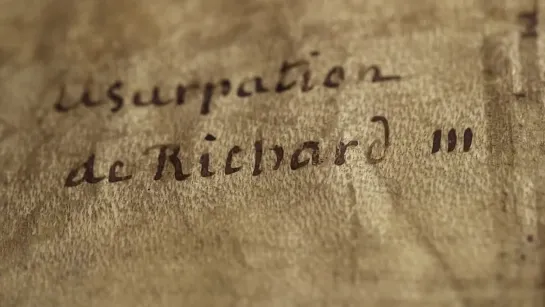 usurpation
de Richard III